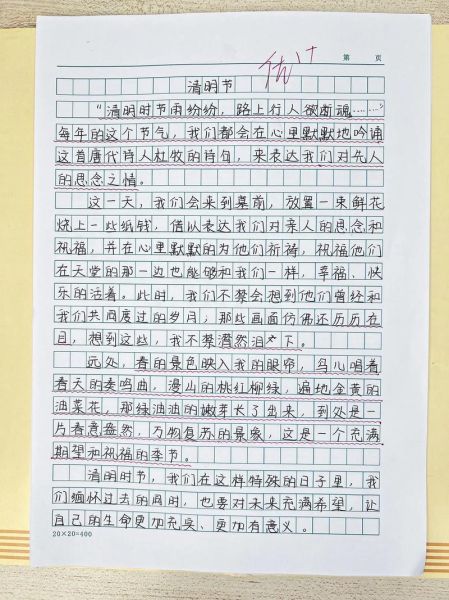 第 页
优++
清明节
“清明时节雨纷纷，路上行人欲断魂……”
每年的这个节气，我们都会在心里默默地吟诵
这首唐代诗人杜牧的诗句，来表达我们对先人
的思念之情。
这一天，我们会来到墓前，放置一束鲜花
烧上一些纸钱，借以表达我们对亲人的思念和
祝福，并在心里默默的为他们祈祷，祝福他们
在天堂的那一边也能够和我们一样，幸福、快
乐的活着。此时，我们不禁会想到他们曾经和
我们共同度过的岁月，那些画面仿佛还历历在
目，想到这些，我不禁潸然泪下。
远处，春的景色映入我的眼帘，鸟儿唱着
春天的奏鸣曲，漫山的桃红柳绿，遍地金黄的
油菜花，那绿油油的嫩芽长了出来，到处是一
片春意盎然，万物复苏的景象，这是一个充满
期望和祝福的季节。
清明时节，我们在这样特殊的日子里，我
们缅怀过去的同时，也要对未来充满希望，让
自己的生命更加充实、更加有意义。
20×20=400